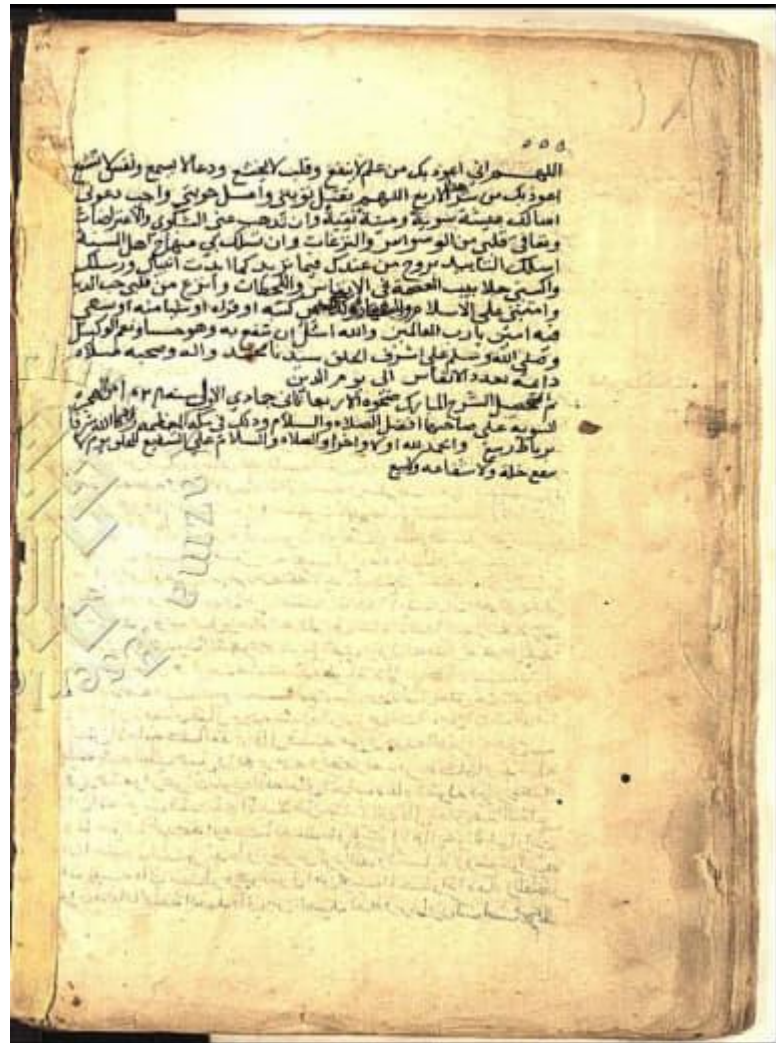 ٥٥٥
اللهم اني اعوذ بك من علم لا ينفع وقلب لا يخشع ودعا لا يسمع ونفس لا تشبع
اعوذ بك من شر هؤلا الاربع اللهم تقبل توبتي واغسل حوبتي واجب دعوتي
اسالك عيشة سوية وميتة نقية وان تذهب عني الشكوى والاعتراضات
وتعافي قلبي من الوسواس والنزغات وان تسلك بي منهاج اهل السنة
اسلك التاييد بروح من عندك فيما تريد كما ايدت انبياك ورسلك
واكسني جلابيب العصمة في الانفاس واللحظات وانزع من قلبي حب الدنيا
وامتني على الاسلام كتبه او قراه او شيا منه او سعى
فيه امين يارب العالمين والله اسئل ان ينفع به وهو حسبنا ونعم الوكيل
وصلى الله وسلم على اشرف الخلق سيدنا محمد واله وصحبه صلاة
دائمة بعدد الانفاس الى يوم الدين
تم الشرح المبارك ضحوة الاربعا ثاني جمادي الاول سنة من الهجرة
النبوية على صاحبها افضل الصلاه والسلام وذلك في مكة المعظمة زادها الله شرفا
برباط ربيع والحمد لله اولا واخرا والصلاه والسلام على الشفيع يوم لا
ينفع خلة ولا شفاعه
azma